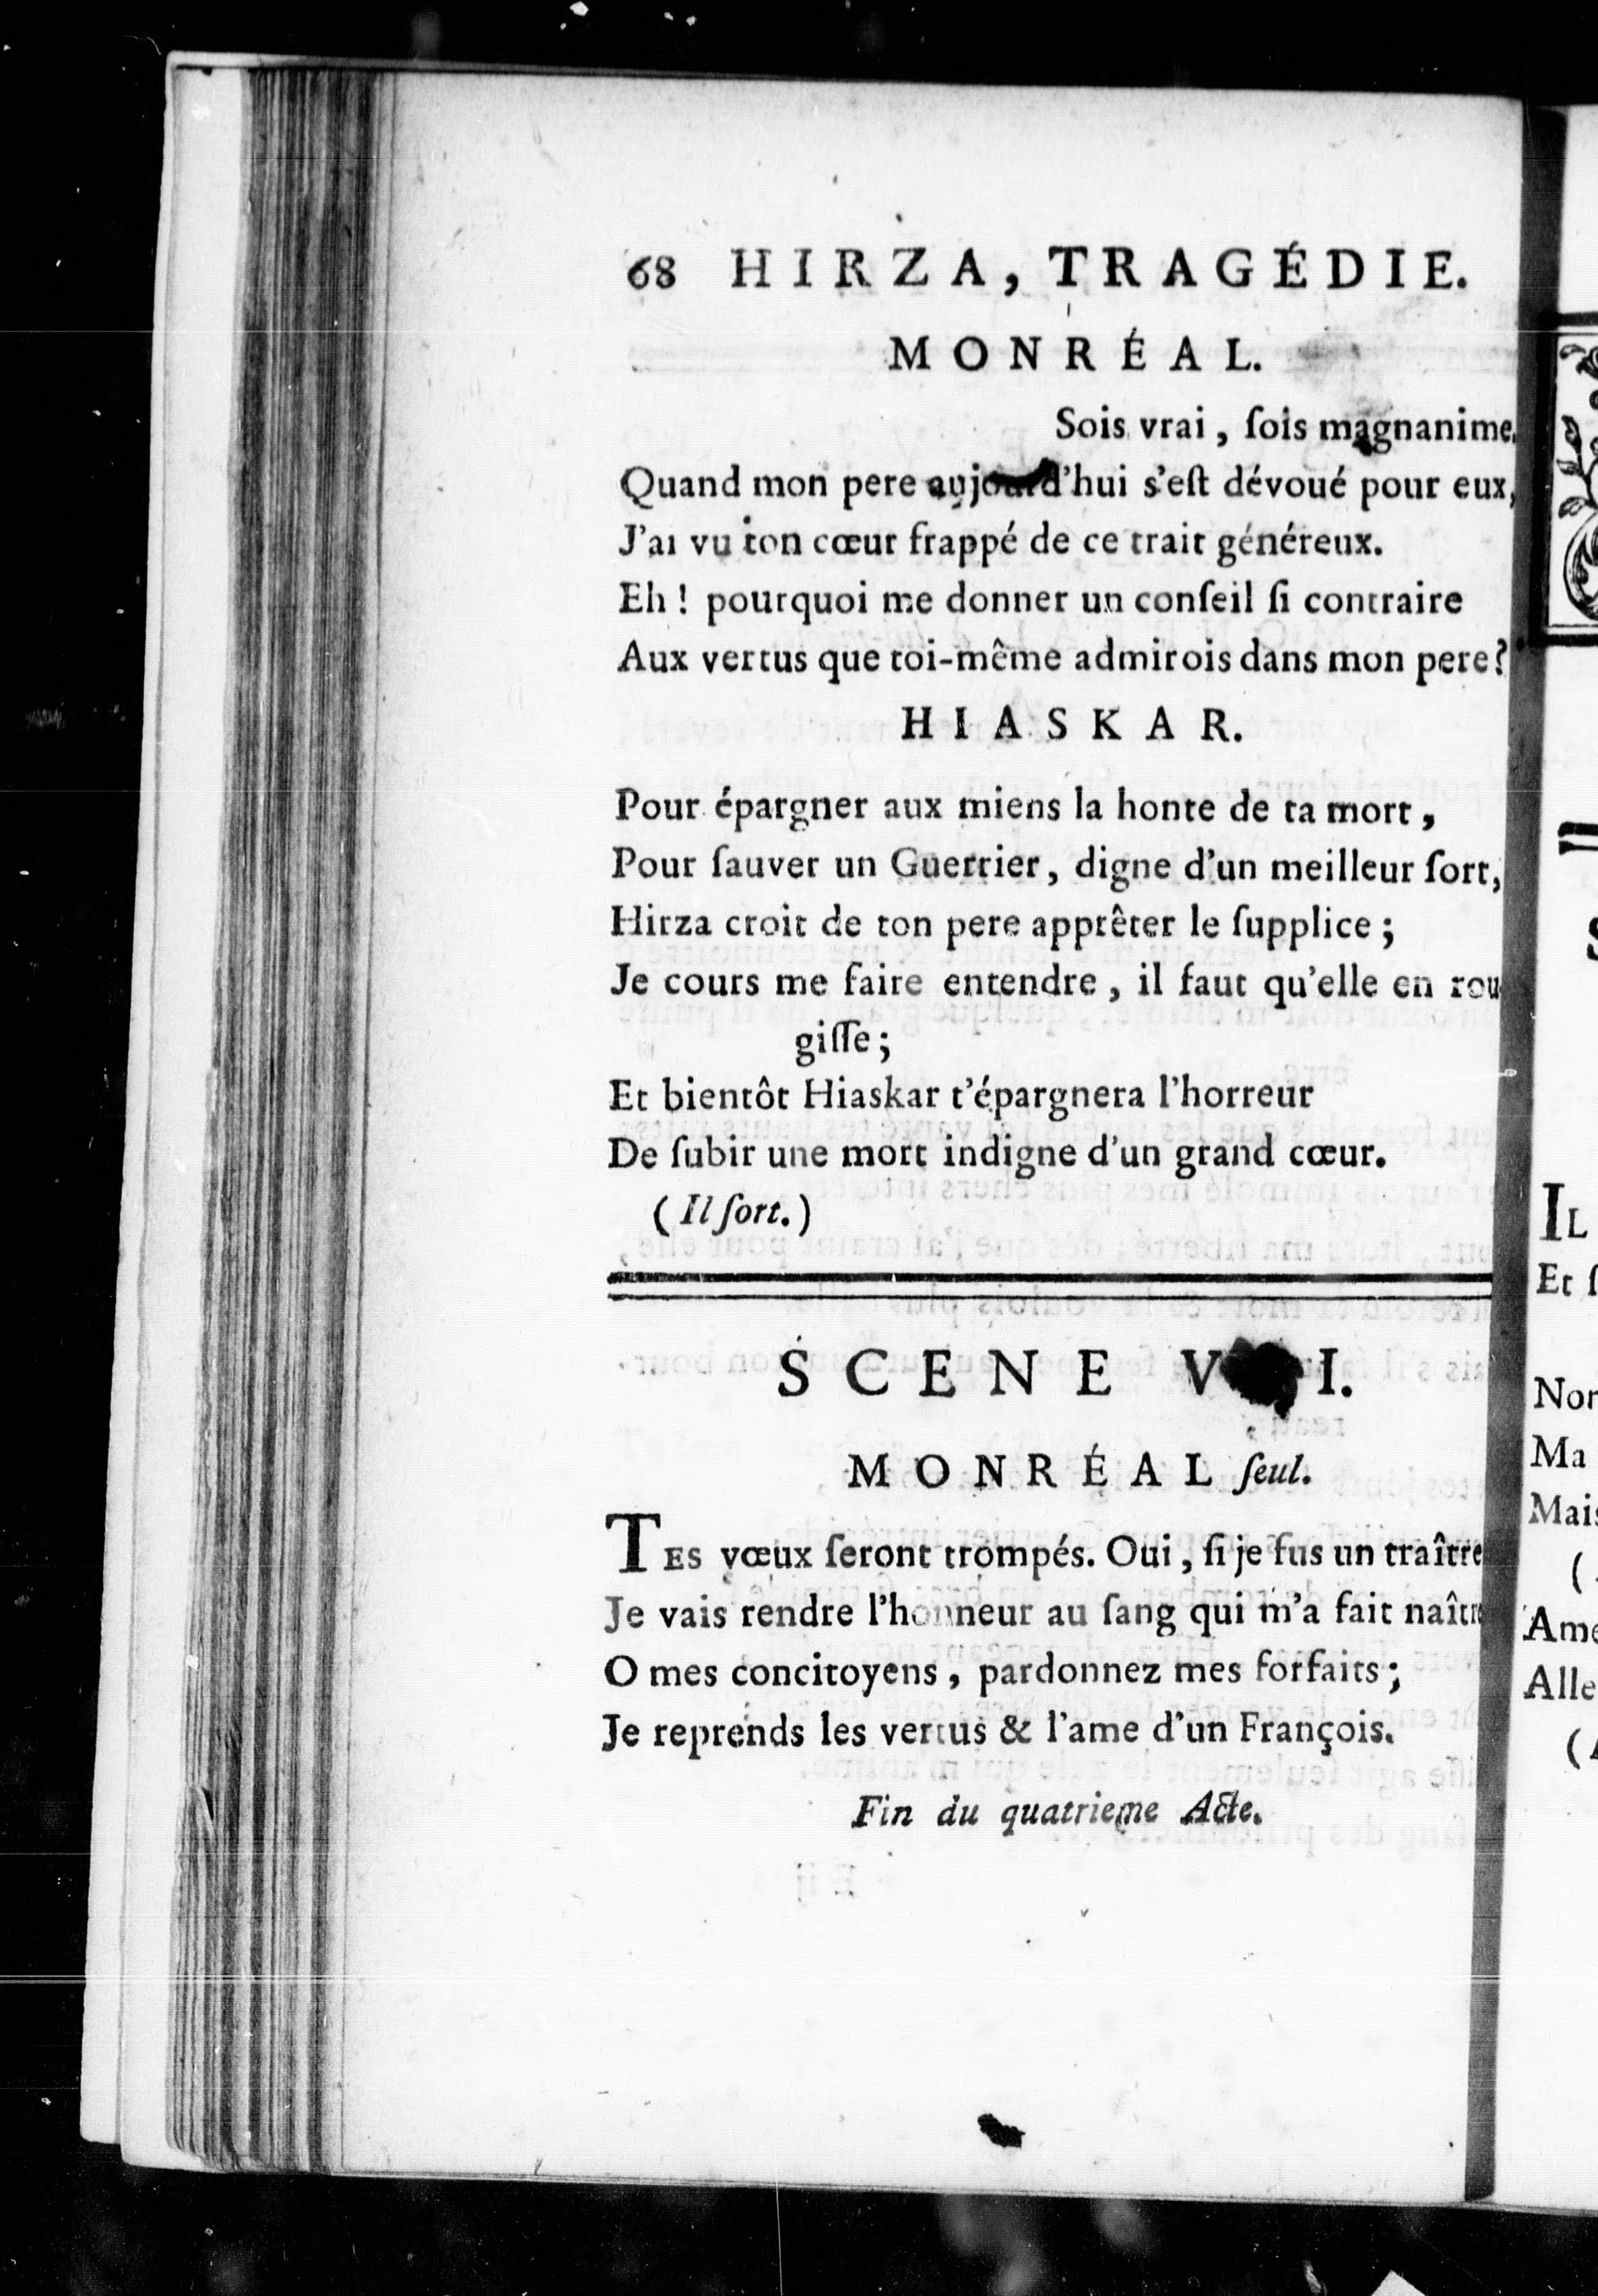 68 HIRZA, TRAGÉDIE.
MONRÉAL.
Sois vrai, ſois magnanime.
Quand mon pere aujourd'hui s'eſt dévoué pour eux,
J'ai vu ton cœur frappé de ce trait généreux.
Eh! pourquoi me donner un conſeil ſi contraire
Aux vertus que toi-même admirois dans mon pere?
HIASKAR.
Pour épargner aux miens la honte de ta mort,
Pour ſauver un Guerrier, digne d'un meilleur ſort,
Hirza croit de ton pere apprêter le ſupplice;
Je cours me faire entendre, il faut qu'elle en rou
giſſe;
Et bientôt Hiaskar t'épargnera l'horreur
De ſubir une mort indigne d'un grand cœur.
(Il ſort.)
SCENE
MONRÉAL ſeul.
TES vœux ſeront trompés. Oui, ſi je fus un traître
Je vais rendre l'honneur au ſang qui m'a fait
O mes concitoyens, pardonnez mes forfaits;
Je reprends les vertus & l'ame d'un François.
Fin du quatrieme Acte.
IL
Et
Ma